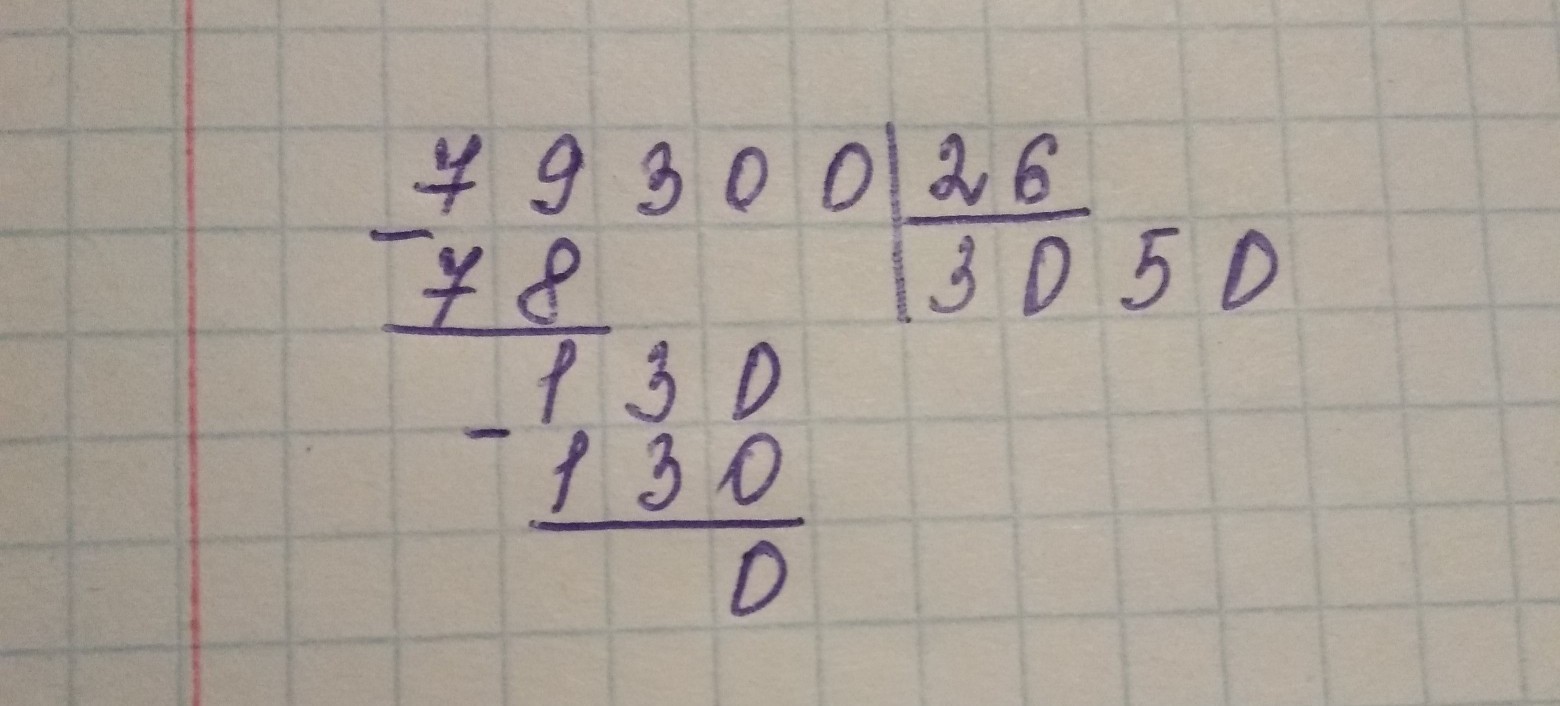 79300 26
- 78 3050
130
- 130
0